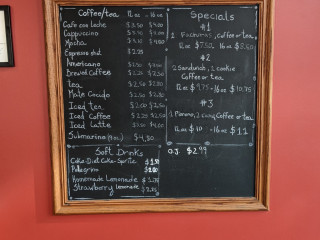 Coffee/tea 12 oz - 16 oz
Cafe con leche $3.50 $4.00
Cappuccino $3.50 $4.00
Mocha $4.00
Espresso shot $2.25
Americano $2.50
Brewed Coffee $2.25 $2.50
Tea $2.50
Mate Cocido $2.50
Iced tea $2.00 $2.50
Iced Coffee $2.50
Iced Latte $3.50
Submarino $4.50
Soft Drinks
Coke-Diet Coke-Sprite
Pellegrino
Homemade Lemonade
Strawberry Lemonade
Specials
#1
2 Facturas, coffee or tea
12 oz 16 oz
#2
2 Sandwich, 2 cookie
Coffee or tea
12 oz $9.75 - 16 oz $10.75
#3
Coffee or tea
12 oz $10 - 16 oz $11
O.J. $2.99